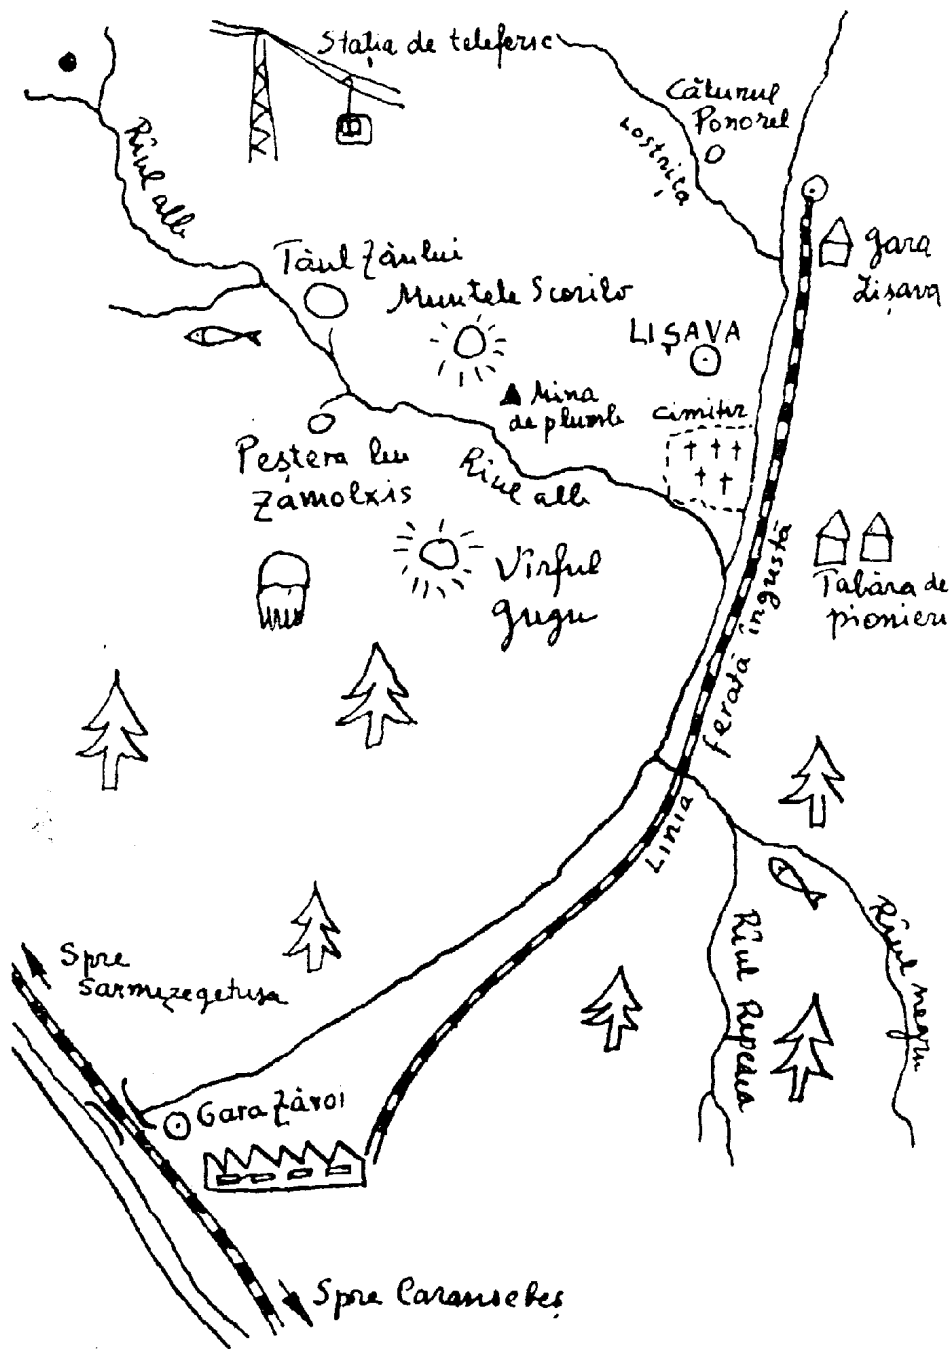 Stația de teleferic
Cătunul
Ponorel
Lostrița
Rîul alb
Gara
Lișava
Tăul Zânului
Muntele Scorilo
LIȘAVA
Mina
de plumb
cimitir
Peștera lui
Zamolxis
Rîul alb
Vîrful
Gugu
Tabăra de
pionieri
Linia ferată îngustă
Rîul Repedea
Rîul negru
Spre
Sarmizegetusa
Gara Zăvoi
Spre Caransebeș